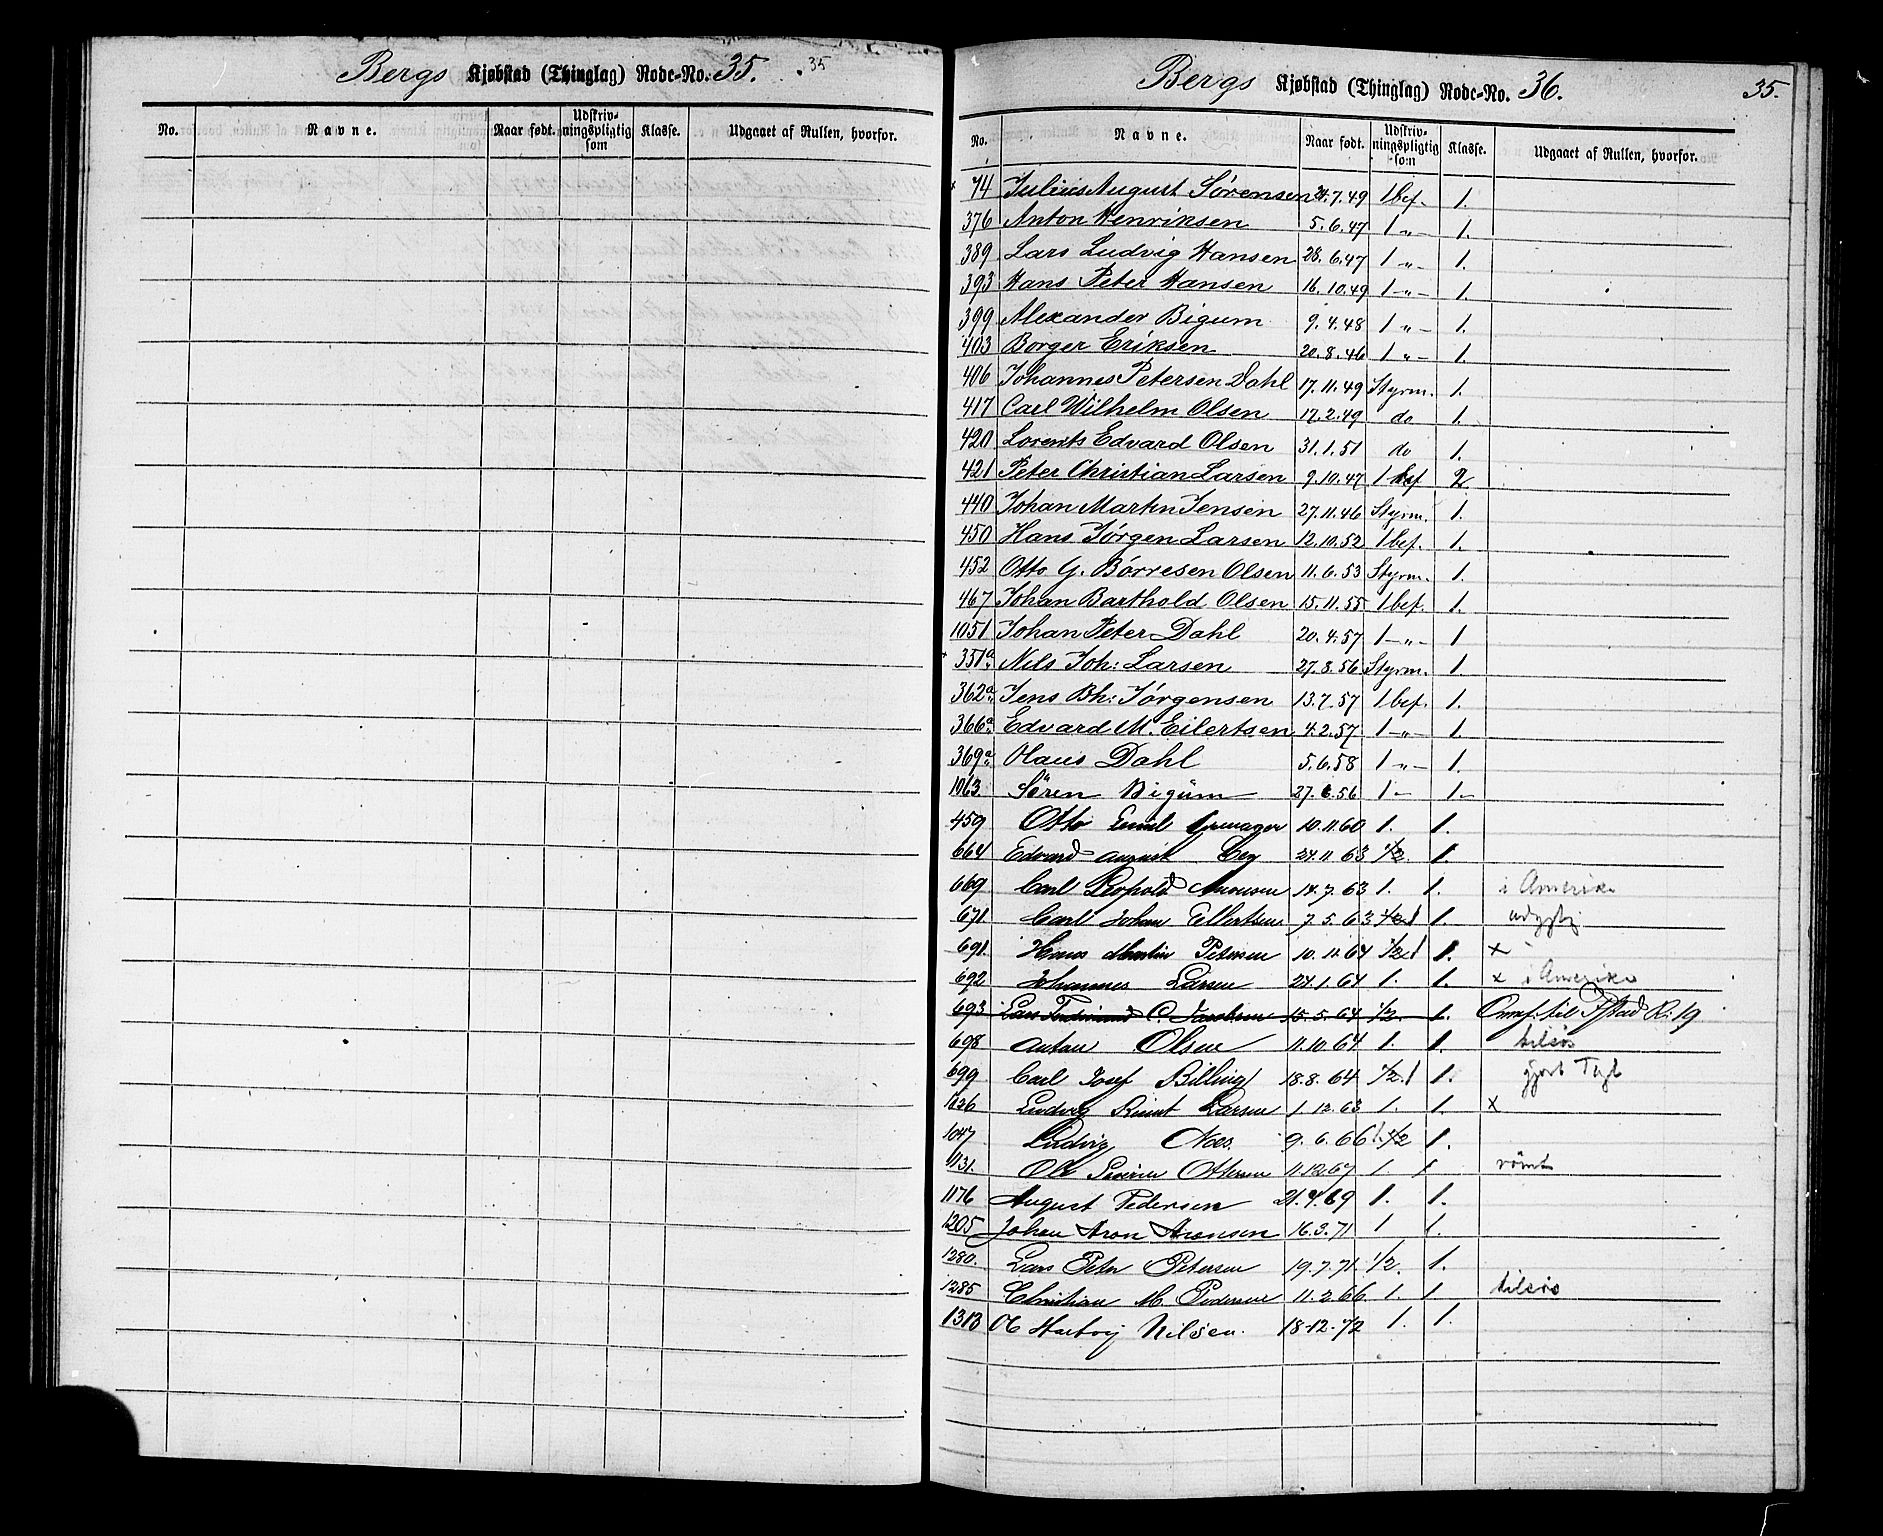 Bergs Kjøbstad (Thinglag) Rode-No. 35. 35
No. Navne. Naar født. Udskriv-ningspligtig som Klasse. Udgaaet af Rullen, hvorfor.
Bergs Kjøbstad (Thinglag) Rode-No. 36. 35.
No. Navne. Naar født. Udskriv-ningspligtig som Klasse. Udgaaet af Rullen, hvorfor.
74 Julius August Sørensen 24.7.49 1 bef. 1.
376 Anton Henriksen 5.6.47 1 „ - 1.
389 Lars Ludvig Hansen 28.6.47 1 „ - 1.
393 Hans Peter Hansen 16.10.49 1 - „ - 1.
399 Alexander Bigum 9.4.48 1 „ - 1.
403 Borger Eriksen 20.8.46 1 „ - 1.
406 Johannes Petersen Dahl 17.11.49 Styrm. 1.
417 Carl Wilhelm Olsen 17.2.49 do 1.
420 Lorents Edvard Olsen 31.1.51 do 1.
421 Peter Christian Larsen 9.10.47 1 bef 2
440 Johan Martin Jensen 27.11.46 Styrm. 1.
450 Hans Jørgen Larsen 12.10.52 1 bef. 1.
452 Otto G. Børresen Olsen 11.6.53 Styrm. 1.
467 Johan Barthold Olsen 15.11.55 1 bef. 1.
1051 Johan Peter Dahl 20.4.57 1 - „ - 1
351a Nils Joh: Larsen 27.8.56 Styrm. 1.
362a Jens Bh: Jørgensen 13.7.57 1 bef. 1.
366a Edvard M. Eilertsen 4.2.57 1 - „ - 1.
369a Olaus Dahl 5.6.58 1 „ - 1.
1063 Søren Bigüm 27.6.56 1 - 1 -
459 Otto Emil 10.11.60 1. 1.
664 Edvard August 24.11.63 1/2. 1.
669 Carl Leopold 14.7.63 1. 1. i Amerika
671 Carl Johan Ellertsen 7.5.63 1/2 1 1.
691. Hans Martin Petersen 10.11.64 1/2 1 1. x
692 Johannes Larsen 24.1.64 1. 1. x i Amerika
693 Lars Ferdinand C. Jacobsen 15.5.64 1/2. 1. Omf. til Ifstad R: 19
698 Anton Olsen 11.10.64 1. 1. tilsøs
699 Carl Josef Billing 18.8.64 1/2. 1 1. gjort Togt
1026 Ludvig Larsen 1.12.63 1. 1. x
1047 Ludvig Næs. 9.6.66 1. 1/2 1.
1131. Ole Severin Ottersen 11.12.67 1. 1 rømt
1176 August Pedersen 21.4.69 1. 1.
1205 Johan Aron Aronsen 16.3.71 1 1.
1280. Lars Peter Petersen 19.7.71 1/2. 1.
1285 Christian M. Pedersen 11.2.66 1. 1 tilsøs
1313 Ole Hartvig Nilsen. 18.12.72 1. 1.